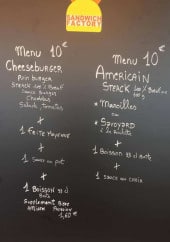 SANDWICH
FACTORY
Menu 10€
Cheeseburger
Pain burger
Steack 100% Boeuf
Sauce Burger
Salade, Tomates
+
1 Frite Moyenne
+
1 Sauce au pot
+
1 Boisson 33 cl
Supplement Biere
1,60 €
Menu 10€
Americain
Steack 100% Boeuf
* Maroilles
ou
* Savoyard
+
1 Boisson 33 cl
+
1 Sauce au choix